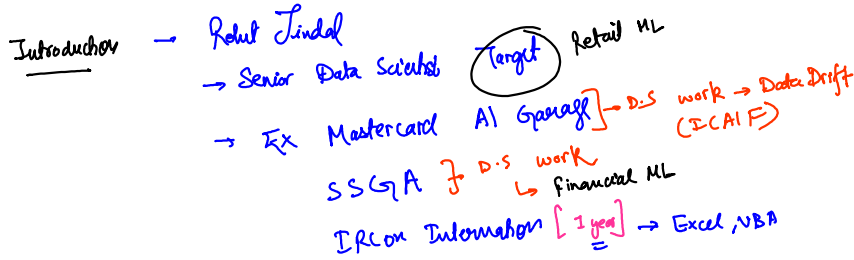 Introduction → Rohit Jindal
→ Senior Data Scientist Target Retail ML
→ Ex Mastercard AI Garage] → D.S work → Data Drift
(ICAIF)
SSGA } D.S work
↳ Financial ML
IRCON International [1 year] → Excel, VBA